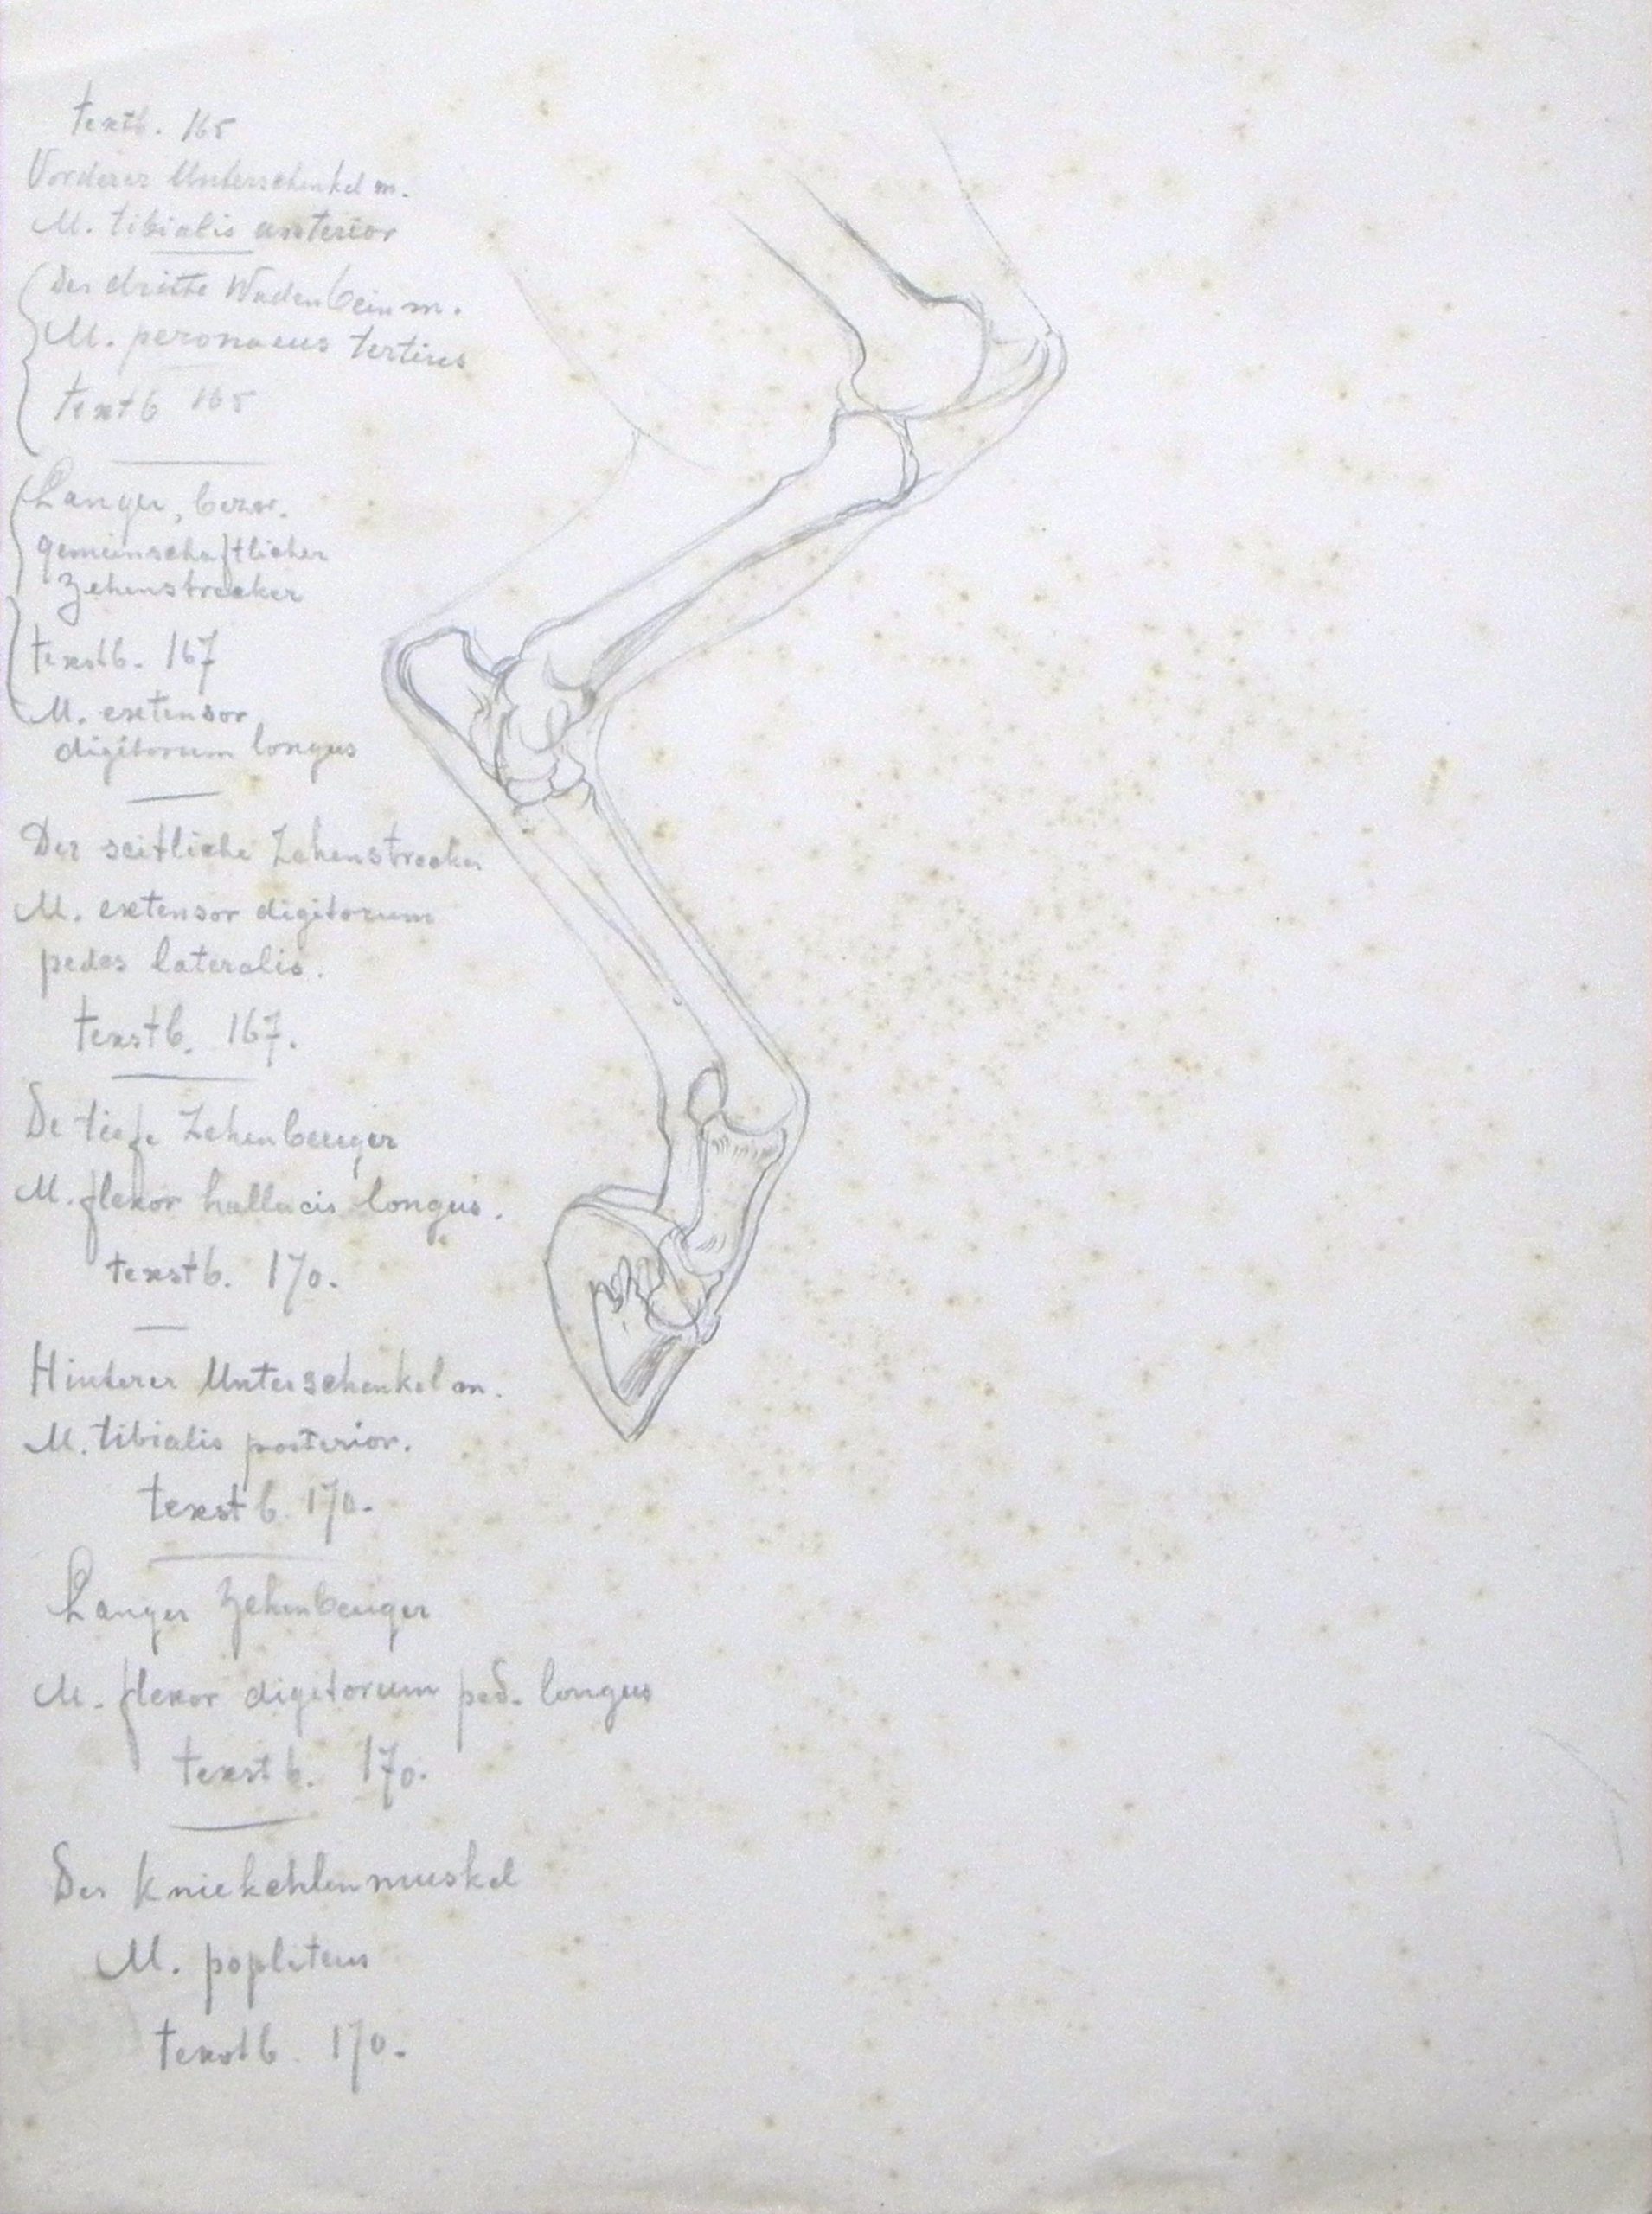 textb. 165
Vorderer Unterschenkel m.
M. tibialis anterior
Der dritte Wadenbein m.
M. peronaeus tertius
textb 165
Langer, bezw.
gemeinschaftlicher
Zehenstrecker
texstb. 167
M. extensor
digitorum longus
Der seitliche Zehenstrecker
M. extensor digitorum
pedes lateralis.
texstb. 167.
De tiefe Zehenbeuger
M. flexor hallucis longus.
texstb. 170.
Hinterer Unterschenkel m.
M. tibialis posterior.
texstb. 170.
Langer Zehenbeuger
M. flexor digitorum ped. longus
texstb. 170.
Der Kniekehlenmuskel
M. popliteus
texstb. 170.